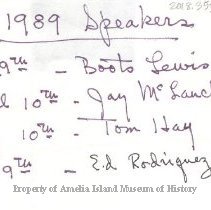 2018.35
1989 Speakers
9TH - Boots Lewis
10TH - Jay McLauc
10TH - Tom Hay
9TH - E.d Rodriguez
Property of Amelia Island Museum of History